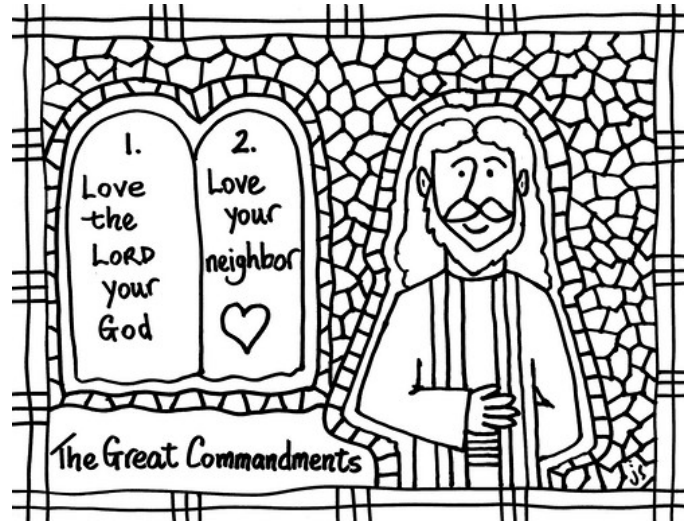 1.
Love
the
LORD
your
God
2.
Love
your
neighbor
The Great Commandments
js